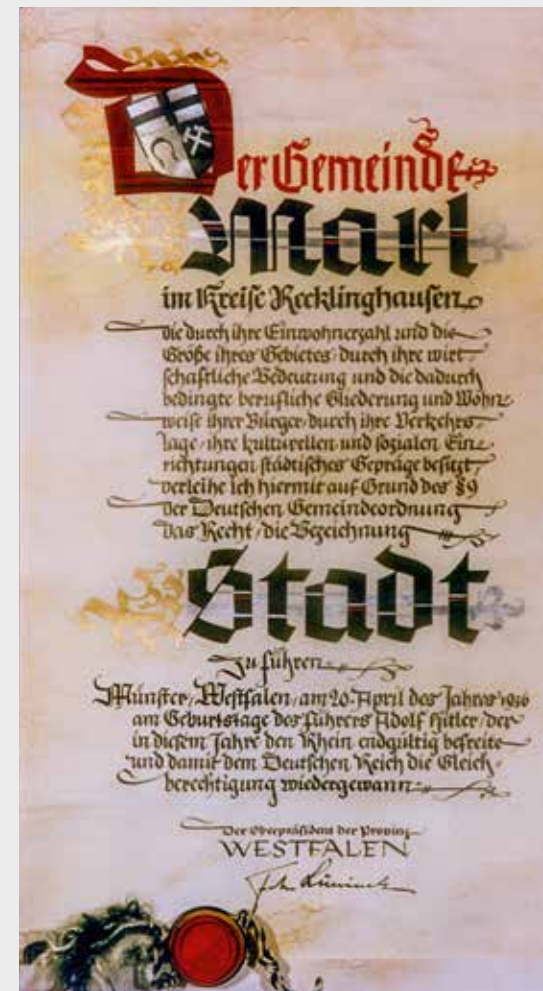 Der Gemeinde
Marl
im Kreise Recklinghausen
die durch ihre Einwohnerzahl und die
Größe ihres Gebietes, durch ihre wirt-
schaftliche Bedeutung und die dadurch
bedingte berufliche Gliederung und Wohn-
weise ihrer Bürger, durch ihre Verkehrs-
lage, ihre kulturellen und sozialen Ein-
richtungen städtisches Gepräge besitzt,
verleihe ich hiermit auf Grund des §9
der Deutschen Gemeindeordnung
das Recht, die Bezeichnung
Stadt
zu führen
Münster, Westfalen, am 20. April des Jahres 1936
am Geburtstage des Führers Adolf Hitler, der
in diesem Jahre den Rhein endgültig befreite
und damit dem Deutschen Reich die Gleich-
berechtigung wiedergewann.
Der Oberpräsident der Provinz
WESTFALEN